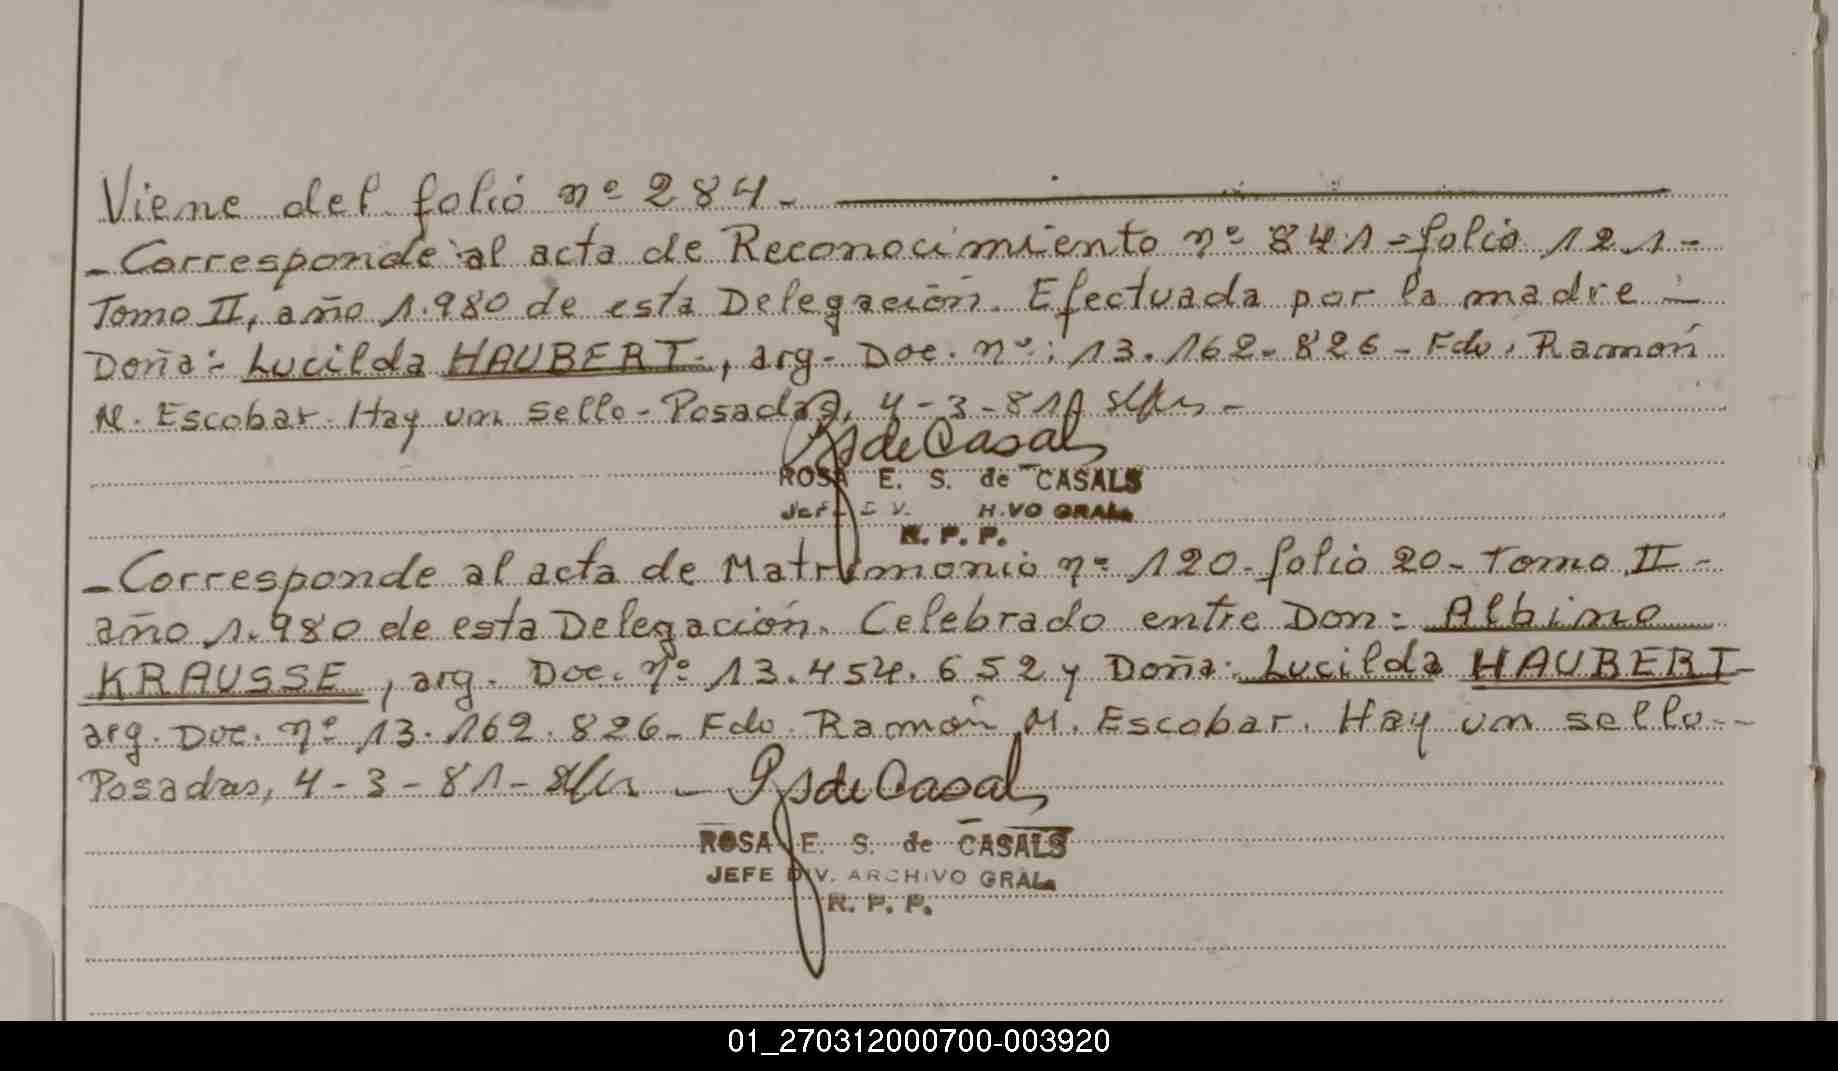 Viene del folio nº 284.-
- Corresponde al acta de Reconocimiento nº 841 - folio 121 -
Tomo II, año 1.980 de esta Delegación. Efectuada por la madre -
Doña: Lucilda HAUBERT, arg. Doc. nº: 13.162.826 - Fdo. Ramón
M. Escobar. Hay un sello - Posadas, 4-3-81
RSdeCasals
ROSA E. S. de CASALS
Jefe DIV. H.VO GRAL.
R. P. P.
- Corresponde al acta de Matrimonio nº 120 - folio 20 - Tomo II -
año 1.980 de esta Delegación. Celebrado entre Don: Albino
KRAUSSE, arg. Doc. nº 13.454.652 y Doña: Lucilda HAUBERT
arg. Doc. nº 13.162.826 - Fdo. Ramón M. Escobar. Hay un sello --
Posadas, 4-3-81 -
RSdeCasals
ROSA E. S. de CASALS
JEFE DIV. ARCHIVO GRAL.
R. P. P.
01_270312000700-003920